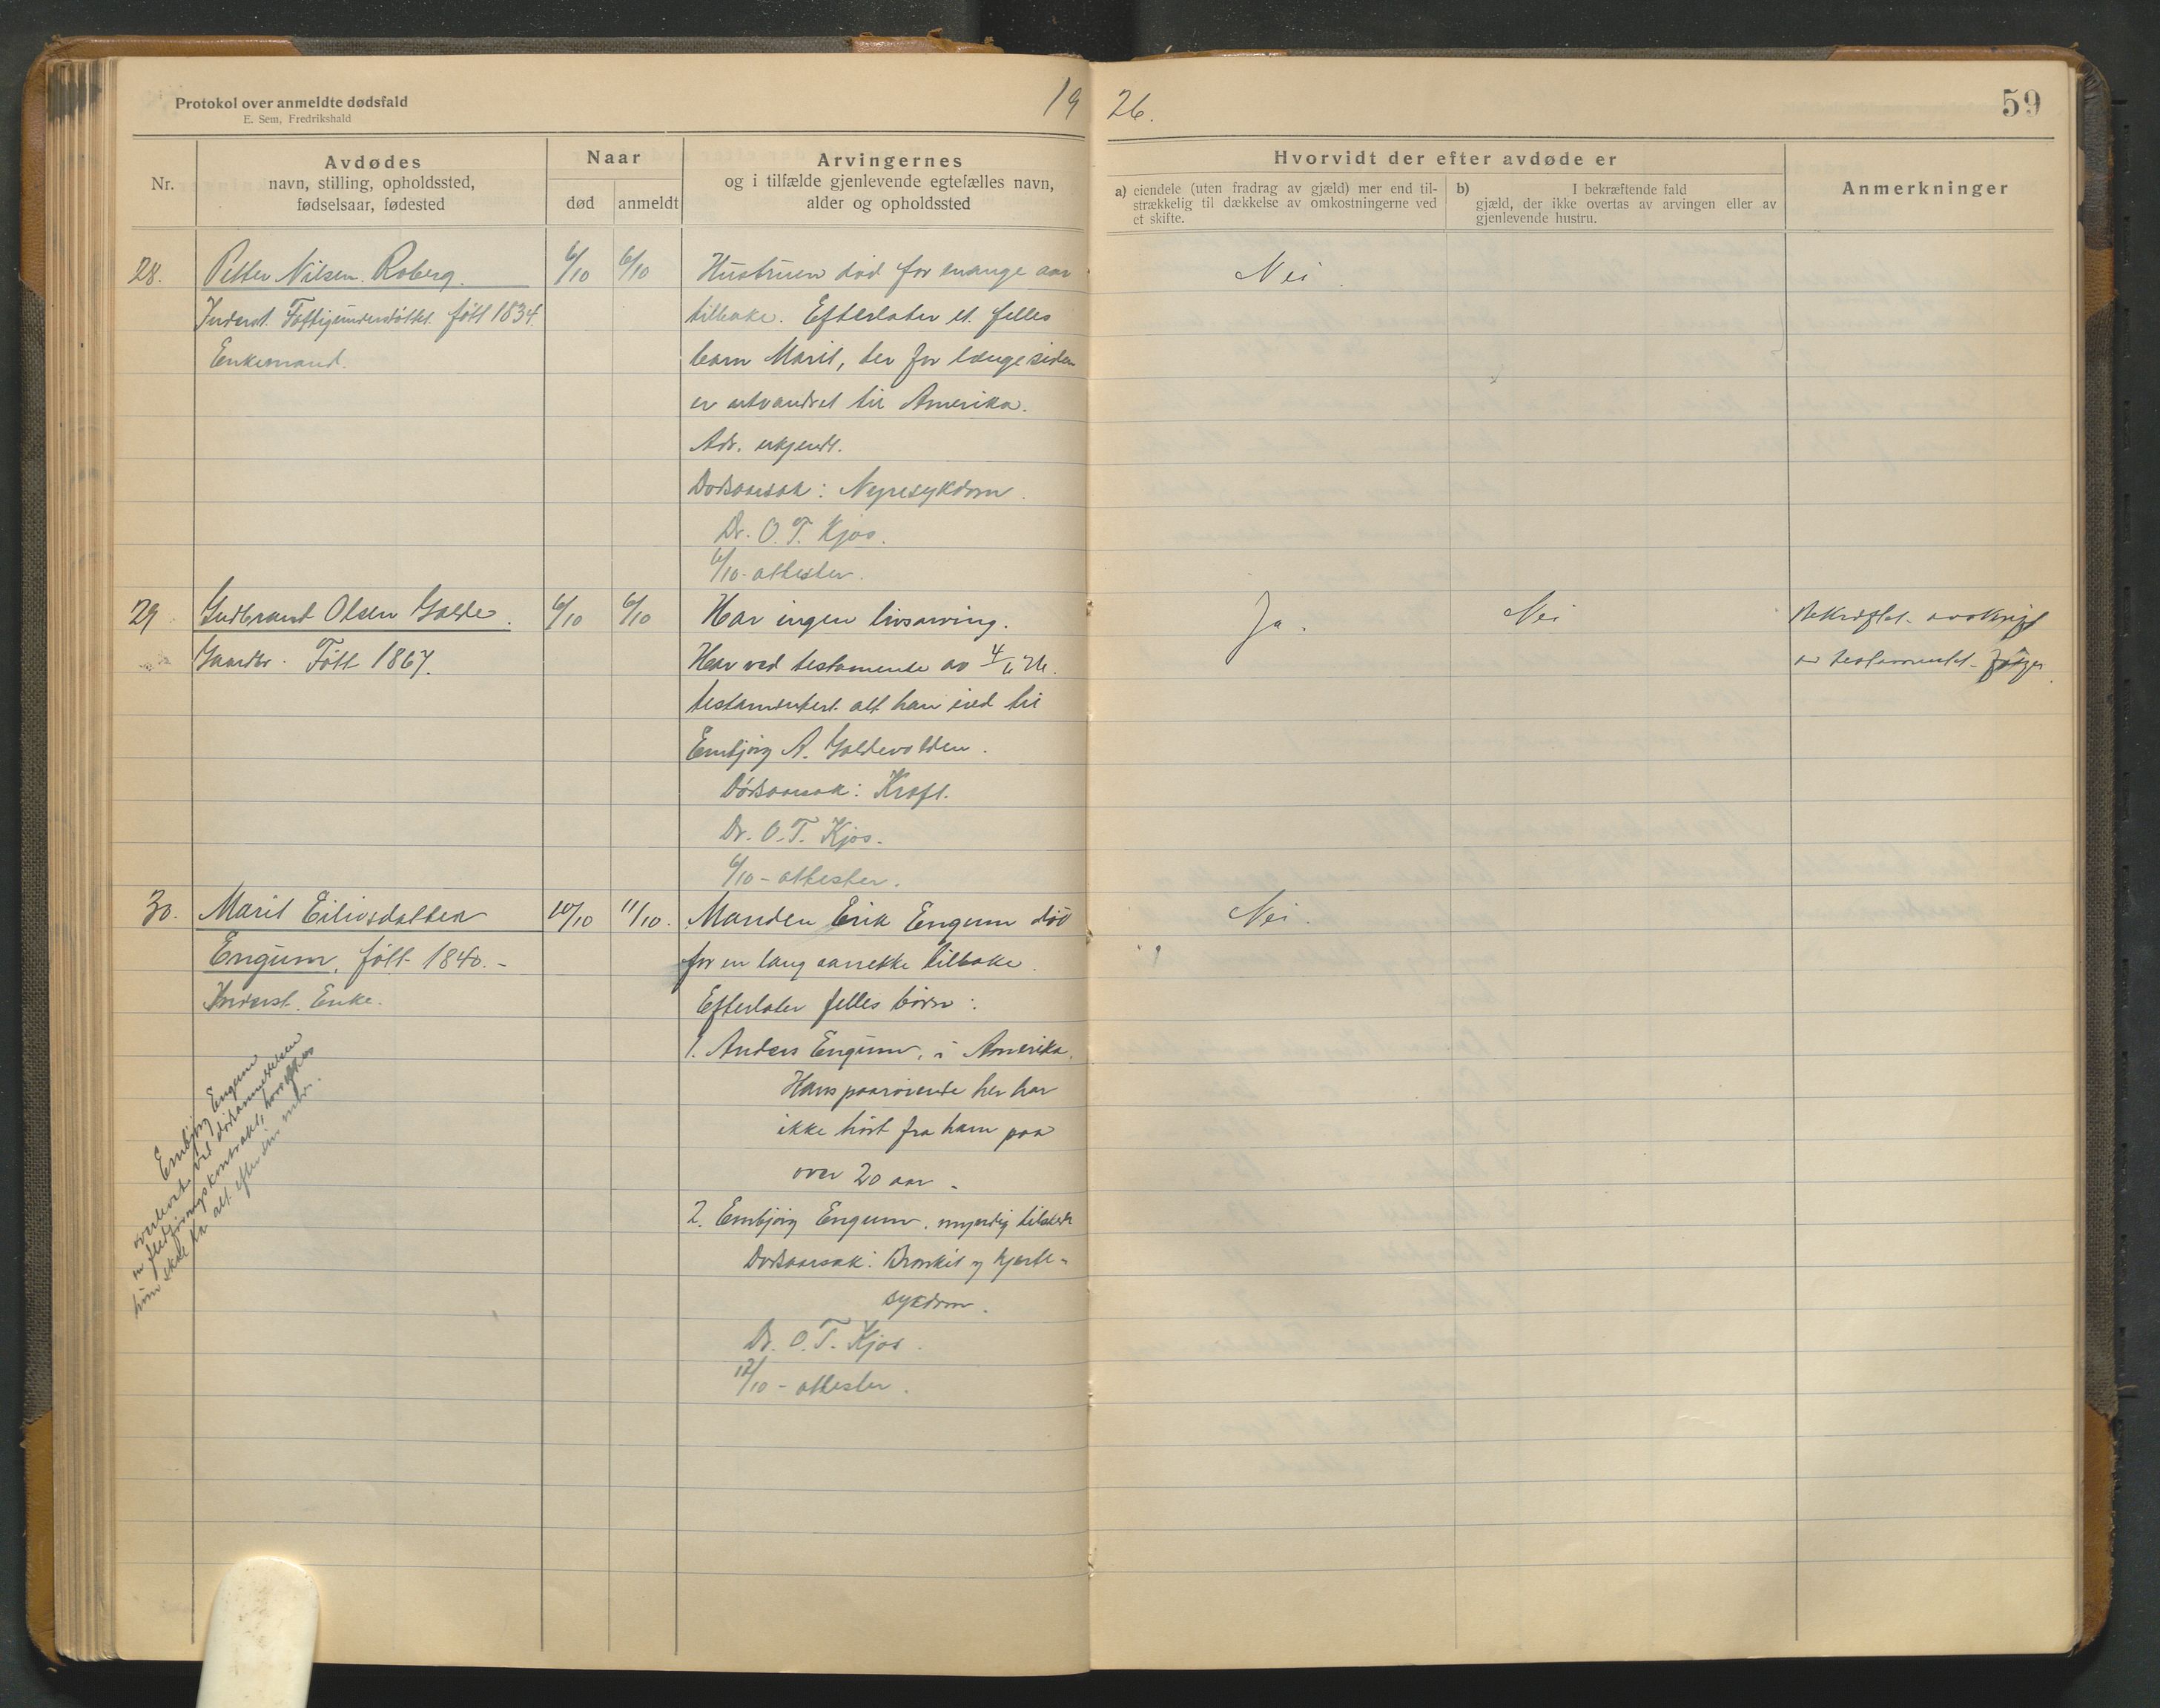 Protokol over anmeldte dødsfald
E. Sem, Fredrikshald
1926.
59
Nr.
Avdødes
navn, stilling, opholdssted,
fødselsaar, fødested
Naar
død
anmeldt
Arvingernes
og i tilfælde gjenlevende egtefælles navn,
alder og opholdssted
Hvorvidt der efter avdøde er
a) eiendele (uten fradrag av gjæld) mer end til-
strækkelig til dækkelse av omkostningerne ved
et skifte.
b) I bekræftende fald
gjæld, der ikke overtas av arvingen eller av
gjenlevende hustru.
Anmerkninger
28.
Petter Nilsen Roberg.
Inderst. Fattigunderstøttet født 1834.
Enkemand.
6/10
6/10
Hustruen død for mange aar
tilbake. Efterlater et felles
barn Marit, der for længe siden
er utvandret til Amerika.
Adr. ukjendt.
Dødsaarsak: Nyresykdom.
Dr. O. T. Kjos.
6/10 - attester.
Nei.
29.
Gudbrand Olsen Golde.
Gaardbr. Født 1867.
6/10
6/10
Har ingen livsarving.
Har ved testamente av 4/6 26.
testamentert alt han eied til
Embjørg A. Goldevolden.
Dødsaarsak: Kræft.
Dr. O. T. Kjos.
6/10 - attester.
Ja.
Nei
Bekræftet avskrift
av testamentet følger.
30.
Marit Eilivsdatter
Engum, født 1840. -
Inderst. Enke.
10/10
11/10.
Manden Erik Engum død
for en lang aarrekke tilbake.
Efterlater felles børn:
1. Anders Engum, i Amerika.
Hans paarørende her har
ikke hørt fra ham paa
over 20 aar.
2. Embjørg Engum, myndig tilstede
Dødsaarsak: Bronkit og hjerte-
sykdom.
Dr. O. T. Kjos.
12/10 - attester.
Nei.
Embjørg Engum
overlevert ved dødsanmeldelsen
en kontrakt, hvorefter
hun skal ha alt efter sin mor.